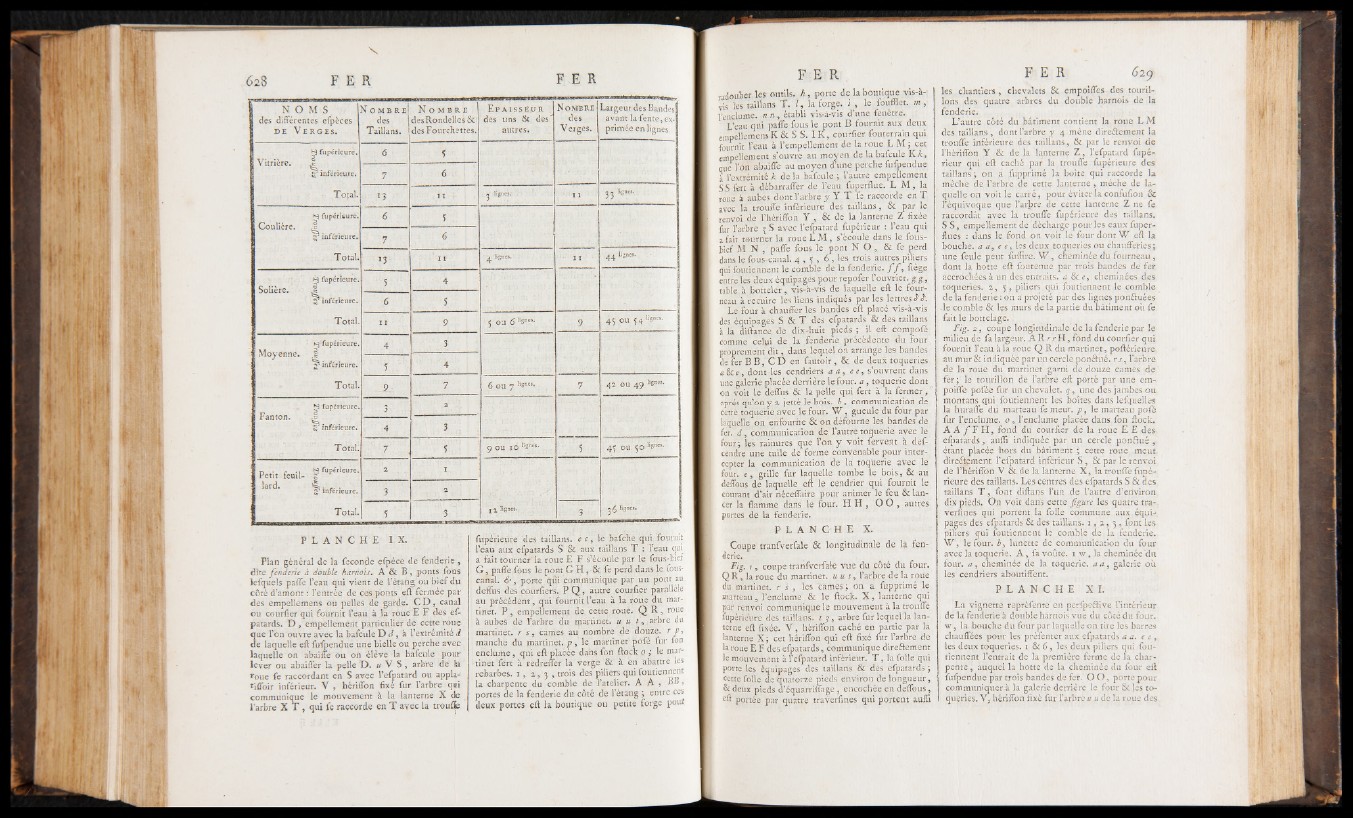 628 FER FER
NOMS des différentes eſpèces DE VERGES. | NOMBRE des Taillans. | NOMBRE des Rondelles & des Fourchettes. | EPAISSEUR des uns & des autres. | NOMBRE des Verges. | Largeur des Bandes avant la fente, exprimée en lignes
Vitrière. Trouſſe ſupérieure. 6 5
inférieure. 7 6
Total. 13 11 3 lignes. 11 33 lignes.
Coulière. Trouſſe ſupérieure. 6 5
inférieure. 7 6
Total. 13 11 4 lignes. 11 44 lignes.
Solière. Trouſſe ſupérieure. 5 4
inférieure. 6 5
Total. 11 9 5 ou 6 lignes. 9 45 ou 54 lignes.
Moyenne. Trouſſe ſupérieure. 4 3
inférieure. 5 4
Total. 9 7 6 ou 7 lignes. 7 42 ou 49 lignes.
Fanton. Trouſſe ſupérieure. 3 2
inférieure. 4 3
Total. 7 5 9 ou 10 lignes. 5 45 ou 50 lignes.
Petit feuillard. Trouſſe ſupérieure. 2 1
inférieure. 3 2
Total. 5 3 12 lignes. 3 36 lignes.
PLANCHE IX.
Plan général de la ſeconde eſpèce de fenderie,
dite fenderie à double harnois. A & B, ponts ſous
leſquels paſſe l'eau qui vient de l'étang ou bief du
côté d'amont : l'entrée de ces ponts eſt fermée par
des empellemens ou pelles de garde. CD, canal
ou courſier qui fournit l'eau à la roue EF des eſ-
patards. D, empellement particulier de cette roue
que l'on ouvre avec la baſcule D d, à l'extrémité d
de laquelle eſt ſuſpendue une bielle ou perche avec
laquelle on abaiſſe ou on élève la baſcule pour
lever ou abaiſſer la pelle D. u V S, arbre de la
roue ſe raccordant en S avec l'eſpatard ou appla-
tiſſoir inférieur. V, hériſſon fixé ſur l'arbre qui
communique le mouvement à la lanterne X de
l'arbre X T, qui ſe raccorde en T avec la trouſſe
ſupérieure des taillans. e c, le baſche qui fournit
l'eau aux eſpatards S & aux taillans T : l'eau qui
a fait tourner la roue E F s'écoule par le ſous-bief
G, paſſe ſous le pont G H, & ſe perd dans le ſous-
canal. &, porte qui communique par un pont au
deſſus des courſiers. P Q, autre courſier parallèle
au précédent, qui fournit l'eau à la roue du mar-
tinet. P, empellement de cette roue. Q R, roue
à aubes de l'arbre du martinet. u u t, arbre du
martinet. r s, cames au nombre de douze. r p,
manche du martinet. p, le martinet poſé ſur ſon
enclume, qui eſt placée dans ſon ſtock o ; le mar-
tinet ſert à redreſſer la verge & à en abattre les
rebarbes. 1, 2, 3, trois des piliers qui ſoutiennent
la charpente du comble de l'atelier. A A, BB,
portes de la fenderie du côté de l'étang ; entre ces
deux portes eſt la boutique ou petite forge pour
FER FER 629
radouber les outils. h, porte de la boutique vis-à-
vis les taillans T. l, la forge. i, le ſoufflet. m,
l'enclume. n n, établi vis-à-vis d'une fenêtre.
L'eau qui paſſe ſous le pont B fournit aux deux
empellemens K & S S. I K, courſier ſouterrain qui
fournit l'eau à l'empellement de la roue L M ; cet
empellement s'ouvre au moyen de la baſcule K k,
que l'on abaiſſe au moyen d'une perche ſuſpendue
à l'extrémité k de la baſcule ; l'autre empellement
S S ſert à débarraſſer de l'eau ſuperflue. L M, la
roue à aubes dont l'arbre y Y T ſe raccorde en T
avec la trouſſe inférieure des taillans, & par le
renvoi de l'hériſſon Y, & de la lanterne Z fixée
ſur l'arbre z S avec l'eſpatard ſupérieur : l'eau qui
a fait tourner la roue L M, s'écoule dans le ſous-
bief M N, paſſe ſous le pont N O, & ſe perd
dans le ſous-canal. 4, 5, 6, les trois autres piliers
qui ſoutiennent le comble de la fenderie. f f, ſiége
entre les deux équipages pour repoſer l'ouvrier. g g,
table à botteler, vis-à-vis de laquelle eſt le four-
neau à recuire les liens indiqués par les lettres
Le four à chauffer les bandes eſt placé vis-à-vis
des équipages S & T des eſpatards & des taillans
à la diſtance de dix-huit pieds ; il eſt compoſé
comme celui de la fenderie précédente du four
proprement dit, dans lequel on arrange les bandes
de fer B B, C D en ſautoir, & de deux toqueries
a & e, dont les cendriers a a, e e, s'ouvrent dans
une galerie placée derrière le four. a, toquerie dont
on voit le deſſus & la pelle qui ſert à la fermer,
après qu'on y a jetté le bois. b, communication de
cette toquerie avec le four. W, gueule du four par
laquelle on enfourne & on défourne les bandes de
fer. d, communication de l'autre toquerie avec le
four ; les rainures que l'on y voit ſervent à deſ-
cendre une tuile de forme convenable pour inter-
cepter la communication de la toquerie avec le
four. e, grille ſur laquelle tombe le bois, & au
deſſous de laquelle eſt le cendrier qui fournit le
courant d'air néceſſaire pour animer le feu & lan-
cer la flamme dans le four. H H, O O, autres
portes de la fenderie.
PLANCHE X.
Coupe tranſverſale & longitudinale de la fen-
derie.
Fig. 1, coupe tranſverſale vue du côté du four.
Q R, la roue du martinet. u u t, l'arbre de la roue
du martinet. r s, les cames ; on a ſupprimé le
marteau, l'enclume & le ſtock. X, lanterne qui
par renvoi communique le mouvement à la trouſſe
ſupérieure des taillans. t 3, arbre ſur lequel la lan-
terne eſt fixée. V, hériſſon caché en partie par la
lanterne X ; cet hériſſon qui eſt fixé ſur l'arbre de
la roue E F des eſpatards, communique directement
le mouvement à l'eſpatard inférieur. T, la ſolle qui
porte les équipages des taillans & des eſpatards ;
cette ſolle de quatorze pieds environ de longueur,
& deux pieds d'équarriſſage, encochée en deſſous,
eſt portée par quatre traverſines qui portent auſſi
les chantiers, chevalets & empoiſſes des touril-
lons des quatre arbres du double harnois de la
fenderie.
L'autre côté du bâtiment contient la roue L M
des taillans, dont l'arbre y 4 mène directement la
trouſſe inférieure des taillans, & par le renvoi de
l'hériſſon Y & de la lanterne Z, l'eſpatard ſupé-
rieur qui eſt caché par la trouſſe ſupérieure des
taillans ; on a ſupprimé la boîte qui raccorde la
mèche de l'arbre de cette lanterne, mèche de la-
quelle on voit le carré, pour éviter la confuſion &
l'équivoque que l'arbre de cette lanterne Z ne ſe
raccordât avec la trouſſe ſupérieure des taillans.
S S, empellement de décharge pour les eaux ſuper-
flues : dans le fond on voit le four dont W eſt la
bouche. a a, e e, les deux toqueries ou chaufferies ;
une ſeule peut ſuffire. W, cheminée du fourneau,
dont la hotte eſt ſoutenue par trois bandes de fer
accrochées à un des entraits. a & e, cheminées des
toqueries. 2, 5, piliers qui ſoutiennent le comble
de la fenderie : on a projeté par des lignes ponctuées
le comble & les murs de la partie du bâtiment où ſe
fait le bottelage.
Fig. 2, coupe longitudinale de la fenderie par le
milieu de ſa largeur. A R r r H, fond du courſier qui
fournit l'eau à la roue Q R du martinet, poſtérieure
au mur & indiquée par un cercle ponctué. r s, l'arbre
de la roue du martinet garni de douze cames de
fer ; le tourillon de l'arbre eſt porté par une em-
poiſſe poſée ſur un chevalet. q, une des jambes ou
montans qui ſoutiennent les boîtes dans leſquelles
la huraſſe du marteau ſe meut. p, le marteau poſé
ſur l'enclume. o, l'enclume placée dans ſon ſtock.
A A f F H, fond du courſier de la roue E E des
eſpatards, auſſi indiquée par un cercle ponctué,
étant placée hors du bâtiment ; cette roue meut
directement l'eſpatard inférieur S, & par le renvoi
de l'hériſſon V & de la lanterne X, la trouſſe ſupé-
rieure des taillans. Les centres des eſpatards S & des
taillans T, ſont diſtans l'un de l'autre d'environ
dix pieds. On voit dans cette figure les quatre tra-
verſines qui portent la ſolle commune aux équi-
pages des eſpatards & des taillans. 1, 2, 3, ſont les
piliers qui ſoutiennent le comble de la fenderie.
W, le four. b, lunette de communication du four
avec la toquerie. A, ſa voûte. 1 w, la cheminée du
four. a, cheminée de la toquerie. a a, galerie où
les cendriers aboutiſſent.
PLANCHE XI.
La vignette repréſente en perſpective l'intérieur
de la fenderie à double harnois vue du côté du four.
w, la bouche du four par laquelle on tire les barres
chauffées pour les préſenter aux eſpatards a a. e e,
les deux toqueries. 1 & 6, les deux piliers qui ſou-
tiennent l'entrait de la première ferme de la char-
pente, auquel la hotte de la cheminée du four eſt
ſuſpendue par trois bandes de fer. O O, porte pour
communiquer à la galerie derrière le four & les to-
queries. V, hériſſon fixé ſur l'arbre u u de la roue des